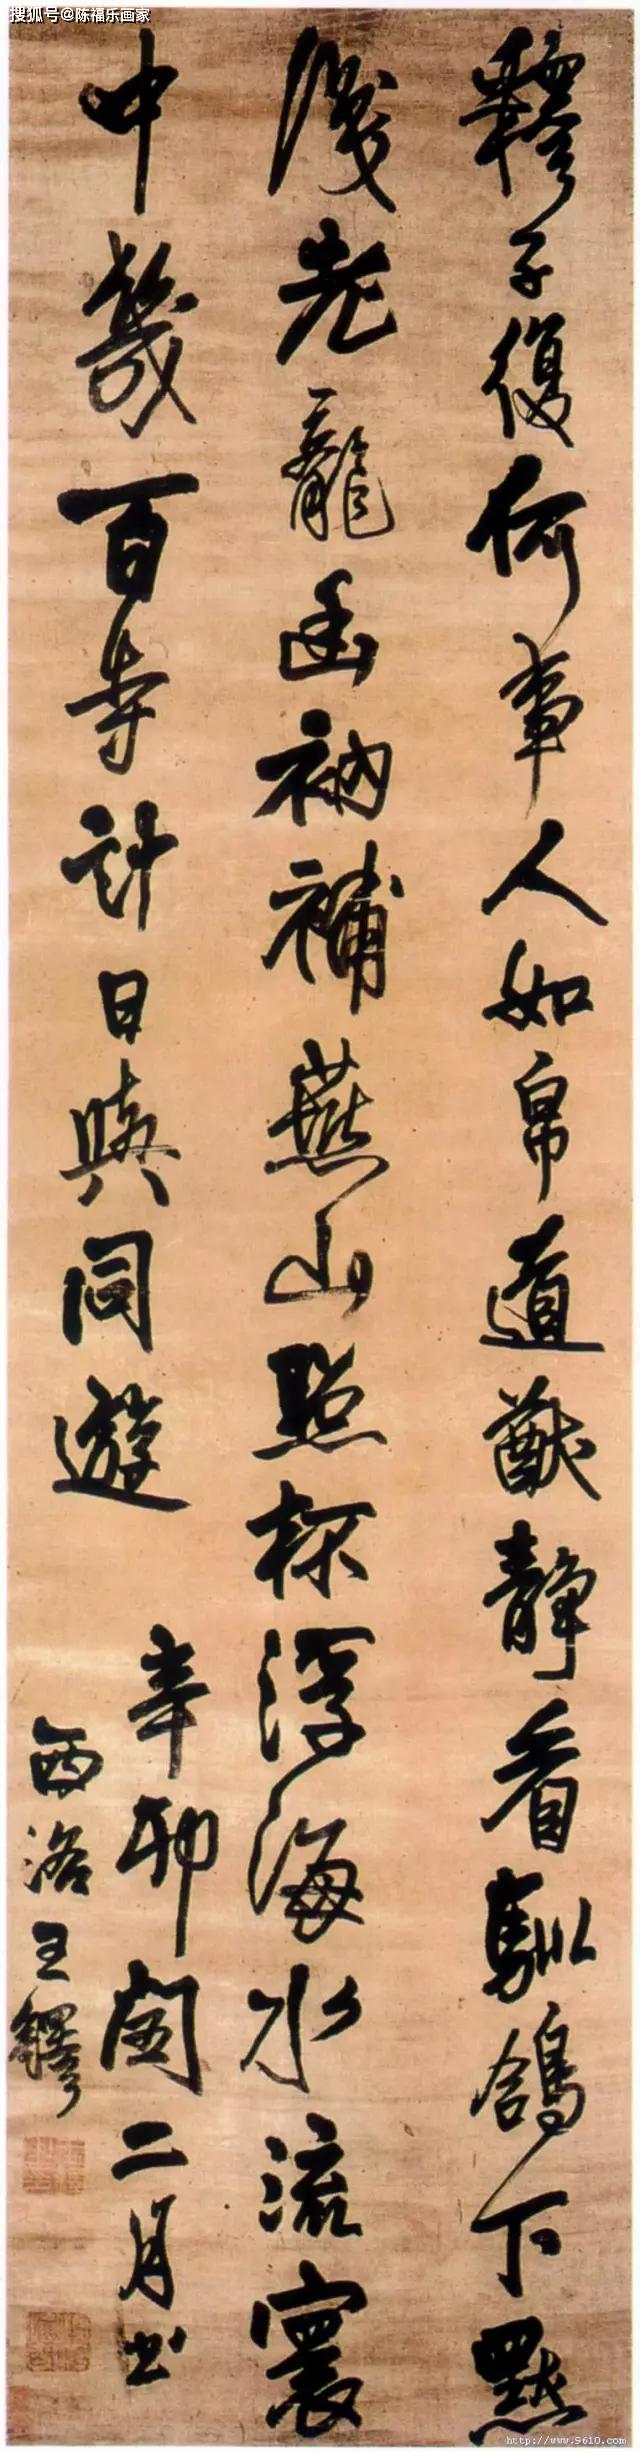 搜狐号@陈福乐画家
釋子復何事人如帛道猷靜看馴鴿下默
老龍幽衲補燕山照杯浮海水流寰
中幾百寺計日與同遊
辛卯閏二月書
西洛王鐸
http://www.9610.com